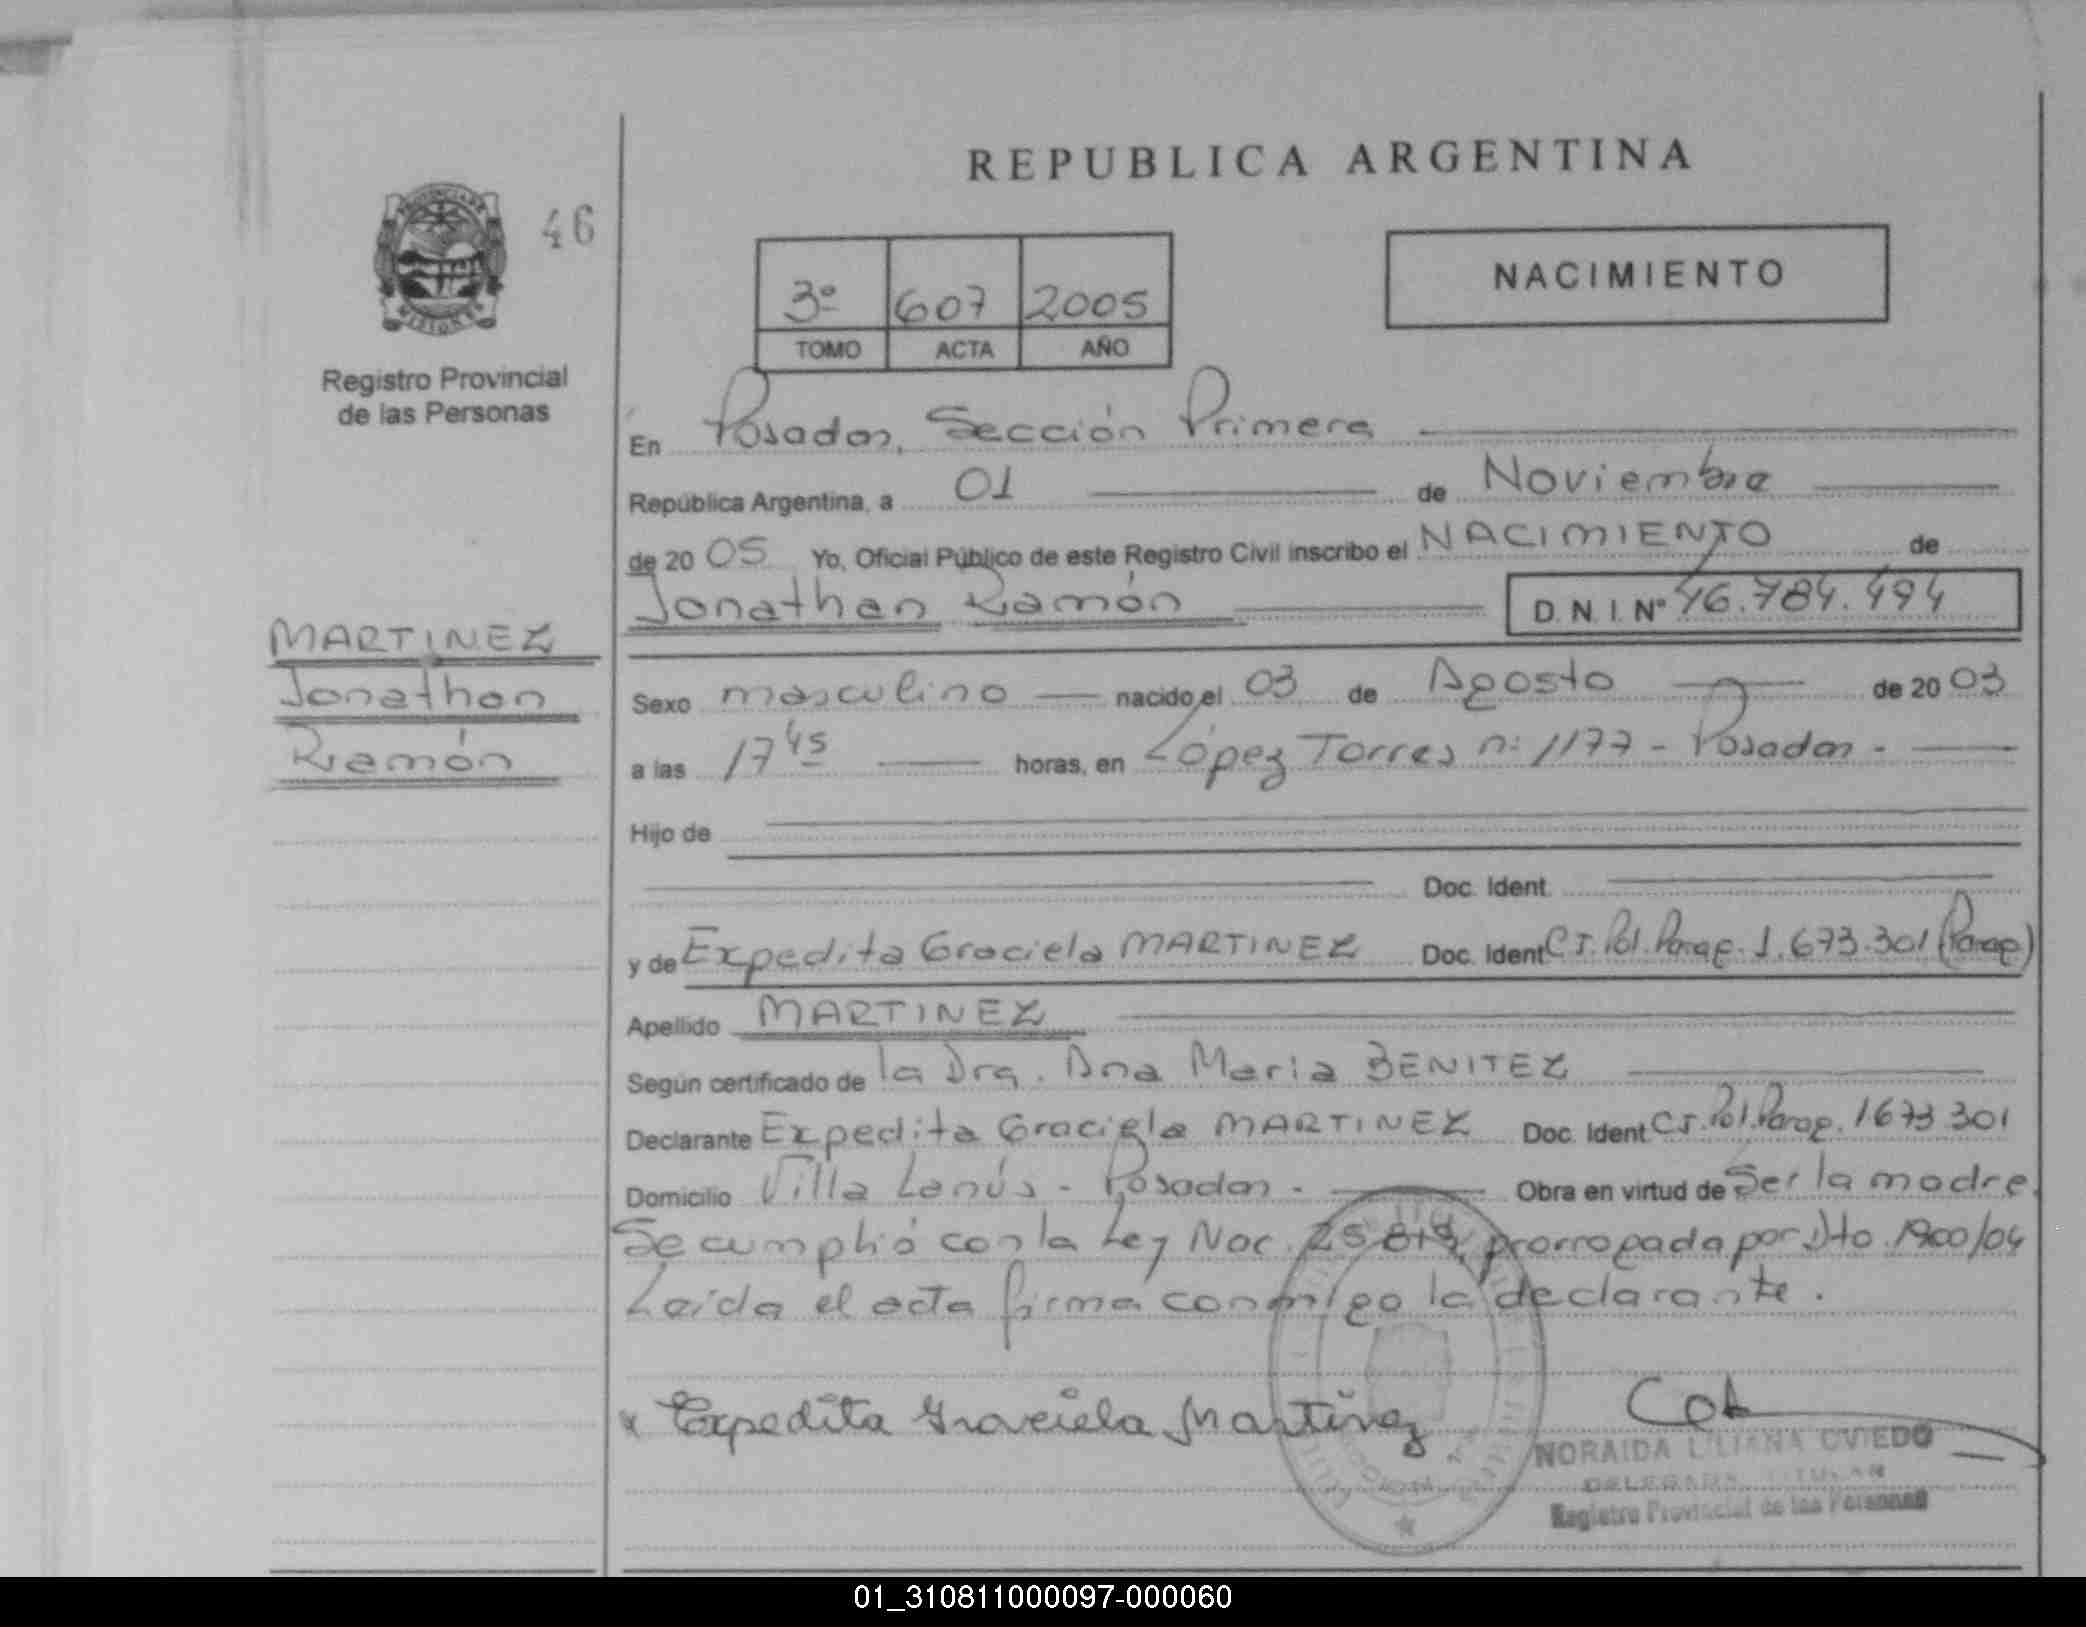 REPUBLICA ARGENTINA
46
NACIMIENTO
3º 607 2005
TOMO ACTA AÑO
Registro Provincial
de las Personas
En Posadas, Sección Primera
República Argentina, a 01 de Noviembre
de 20 05 Yo, Oficial Público de este Registro Civil inscribo el NACIMIENTO de
Jonathan Ramón D.N.I. Nº 46.784.494
MARTINEZ
Jonathan
Ramón
Sexo masculino nacido el 03 de Agosto de 20 03
a las 17 45 horas, en López Torres nº 1177 - Posadas -
Hijo de
Doc. Ident.
y de Expedita Graciela MARTINEZ Doc. Ident C.I. Pol. Parag. 1.673.301 (Parag)
Apellido MARTINEZ
Según certificado de la Dra. Ana Maria BENITEZ
Declarante Expedita Graciela MARTINEZ Doc. Ident C.I. Pol. Parag. 1673301
Domicilio Villa Lanús - Posadas - Obra en virtud de Ser la madre
Se cumplió con la Ley Nac. 25.819, prorrogada por Dto. 1900/04
Leída el acta firma conmigo la declarante.
x Expedita Graciela Martinez
NORAIDA LILIANA OVIEDO
DELEGADA TITULAR
Registro Provincial de las Personas
01_310811000097-000060